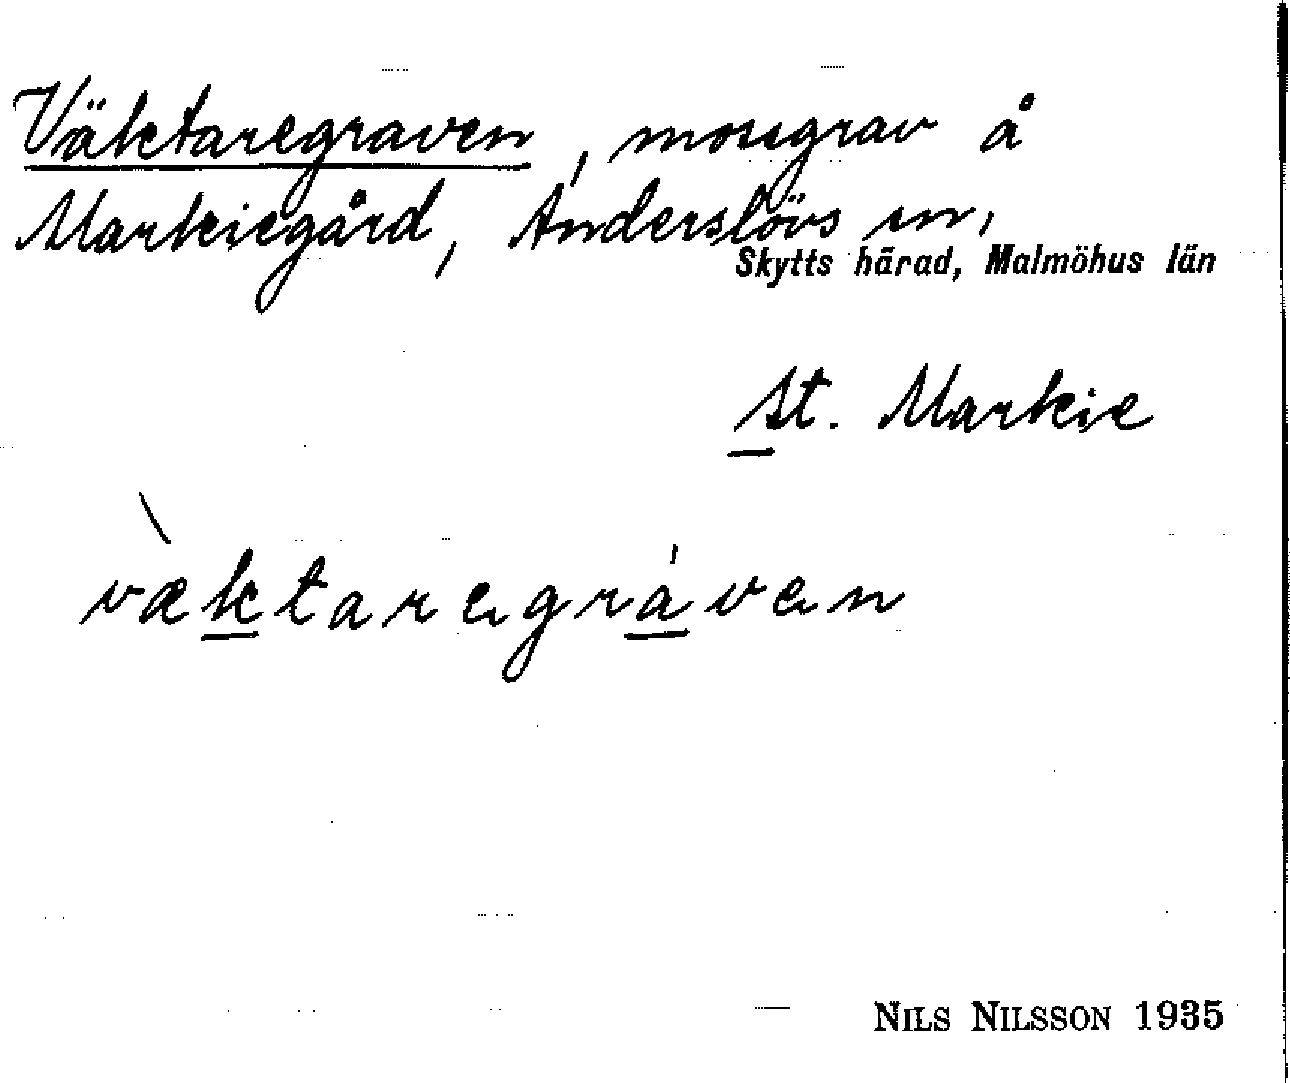 Väktaregraven, mosegrav å
Markiegård, Anderslövs sn,
Skytts härad, Malmöhus län
St. Markie
væktaregráven
NILS NILSSON 1935